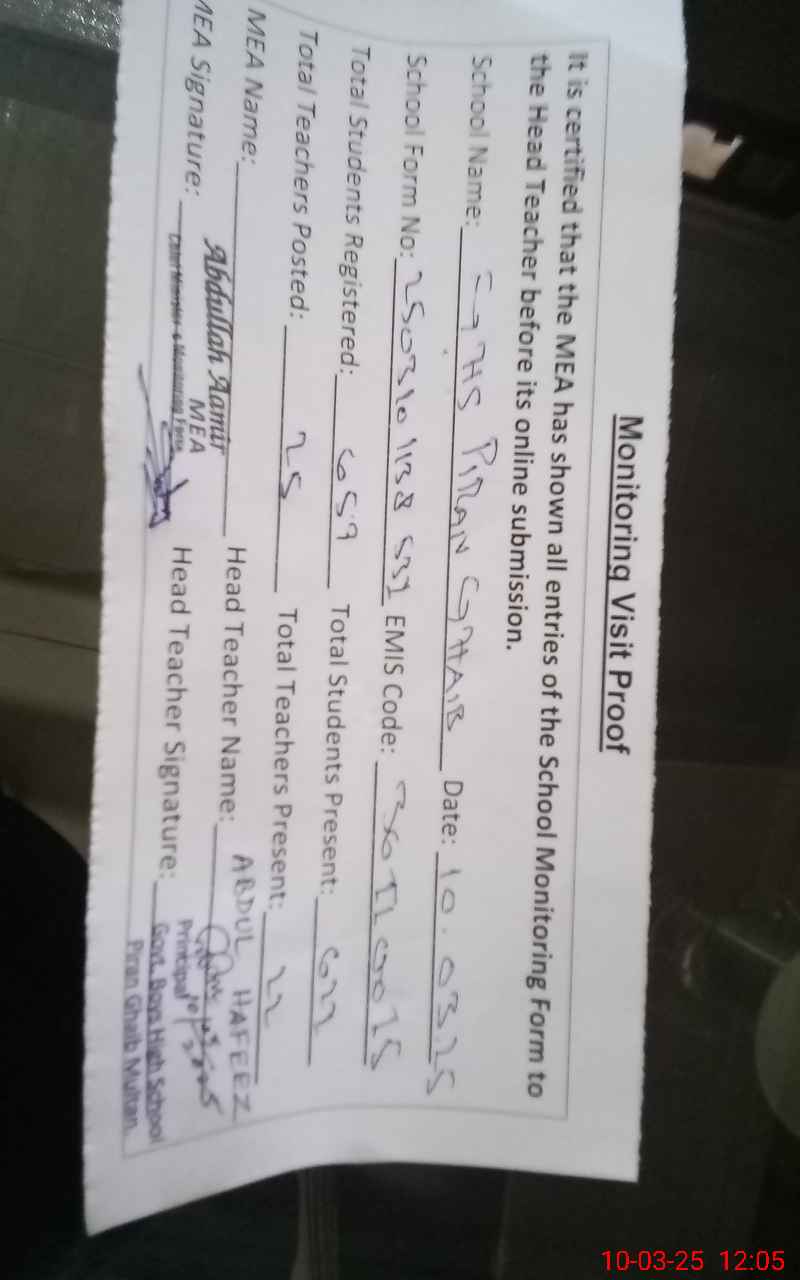 Monitoring Visit Proof
It is certified that the MEA has shown all entries of the School Monitoring Form to
the Head Teacher before its online submission.
School Name: GHS PIRAN GHAIB Date: 10.03.25
School Form No: EMIS Code:
Total Students Registered: 659 Total Students Present: 622
Total Teachers Posted: 25 Total Teachers Present: 22
MEA Name: Abdullah Aamir Head Teacher Name: ABDUL HAFEEZ
MEA
MEA Signature: Head Teacher Signature:
Principal
Govt. Boys High School
Piran Ghaib Multan
10-03-25 12:05